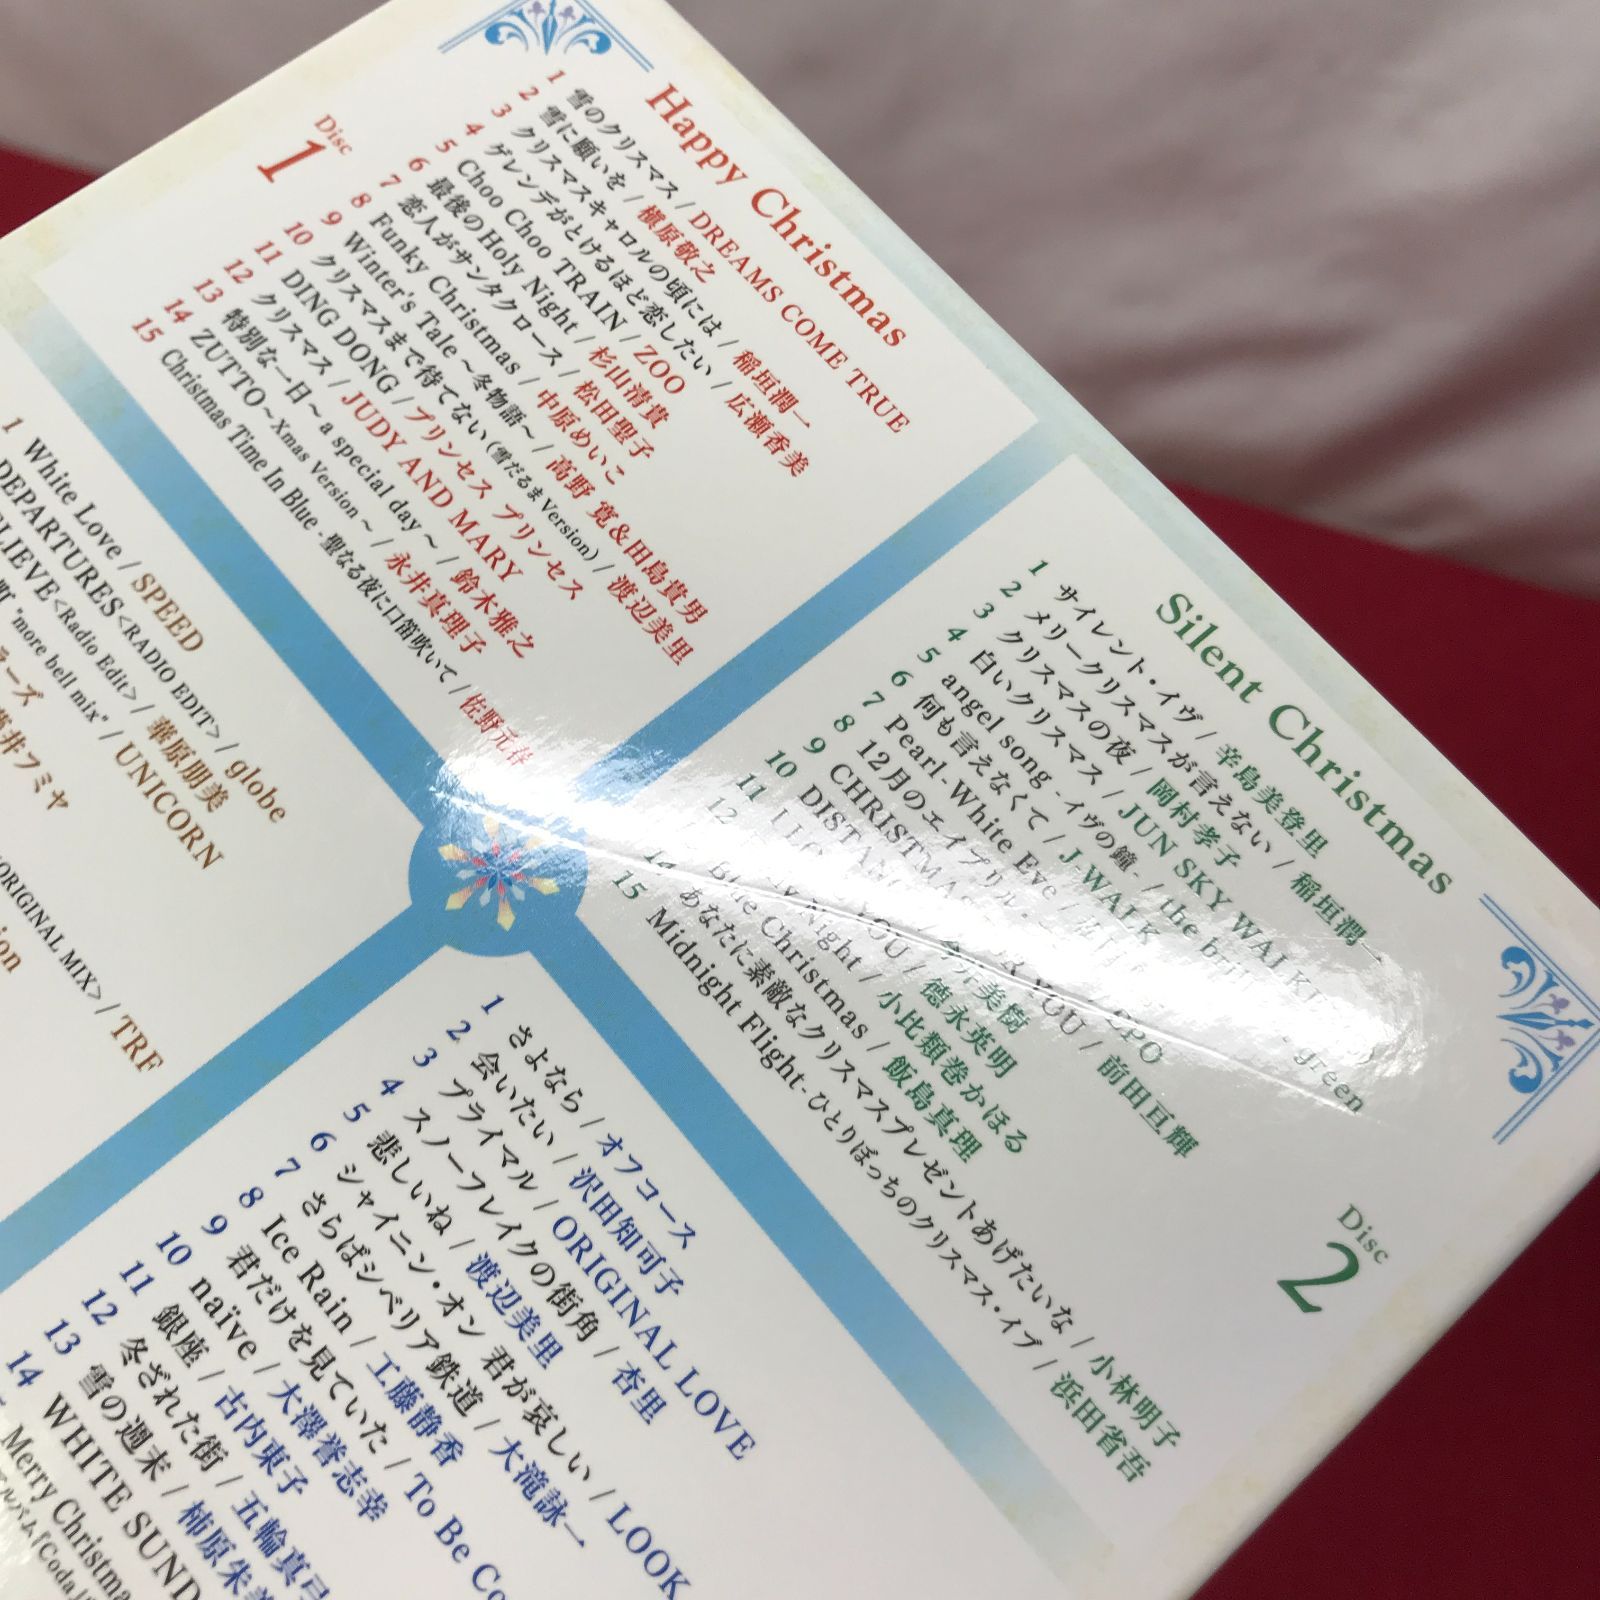 Disc
1
Happy Christmas
1 雪のクリスマス / DREAMS COME TRUE
2 雪に願いを / 槇原敬之
3 クリスマスキャロルの頃には / 稲垣潤一
4 ゲレンデがとけるほど恋したい / 広瀬香美
5 Choo Choo TRAIN / ZOO
6 最後のHoly Night / 杉山清貴
7 恋人がサンタクロース / 松田聖子
8 Funky Christmas / 中原めいこ
9 Winter's Tale ～冬物語～ / 高野 寛&田島貴男
10 クリスマスまで待てない (雪だるまVersion) / 渡辺美里
11 DING DONG / プリンセス プリンセス
12 クリスマス / JUDY AND MARY
13 特別な一日 ～ a special day ～ / 鈴木雅之
14 ZUTTO ～ Xmas Version ～ / 永井真理子
15 Christmas Time In Blue - 聖なる夜に口笛吹いて / 佐野元春
Silent Christmas
1 サイレント・イヴ / 辛島美登里
2 メリークリスマスが言えない / 稲垣潤一
3 クリスマスの夜 / 岡村孝子
4 白いクリスマス / JUN SKY WALKER
5 angel song - イヴの鐘 - / the brilliant green
6 何も言えなくて / J-WALK
7 Pearl-White Eve /
8 12月のエイプリル・ / EPO
9 CHRISTMAS YOU / 前田亘輝
10 DISTANC / 今井美樹
11 YOU / 徳永英明
12 Night / 小比類巻かほる
Blue Christmas / 飯島真理
14 あなたに素敵なクリスマスプレゼントあげたいな / 小林明子
15 Midnight Flight - ひとりぼっちのクリスマス・イブ / 浜田省吾
Disc
2
1 White Love / SPEED
DEPARTURES <RADIO EDIT> / globe
ELIEVE <Radio Edit> / 華原朋美
町 "more bell mix" / UNICORN
ラーズ
藤井フミヤ
ORIGINAL MIX> / TRF
ion
1 さよなら / オフコース
2 会いたい / 沢田知可子
3 プライマル / ORIGINAL LOVE
4 スノーフレイクの街角 / 杏里
5 悲しいね / 渡辺美里
6 シャイニン・オン 君が哀しい / LOOK
7 さらばシベリア鉄道 / 大滝詠一
8 Ice Rain / 工藤静香
9 君だけを見ていた / To Be Co
10 naïve / 大澤誉志幸
11 銀座 / 古内東子
12 冬ざれた街 / 五輪真弓
13 雪の週末 / 柿原朱美
14 WHITE SUND
Merry Christma
アルバム『Coda』